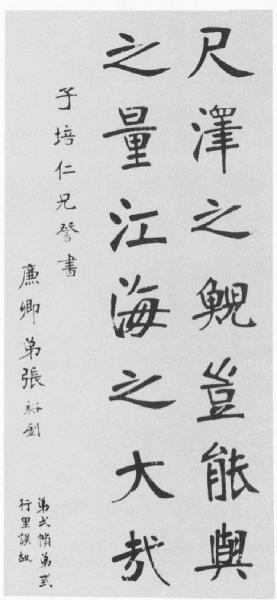 尺澤之鯢豈能與
之量江海之大哉
子培仁兄詧書
廉卿弟張裕釗
弟弍幀弟弍
行里誤故